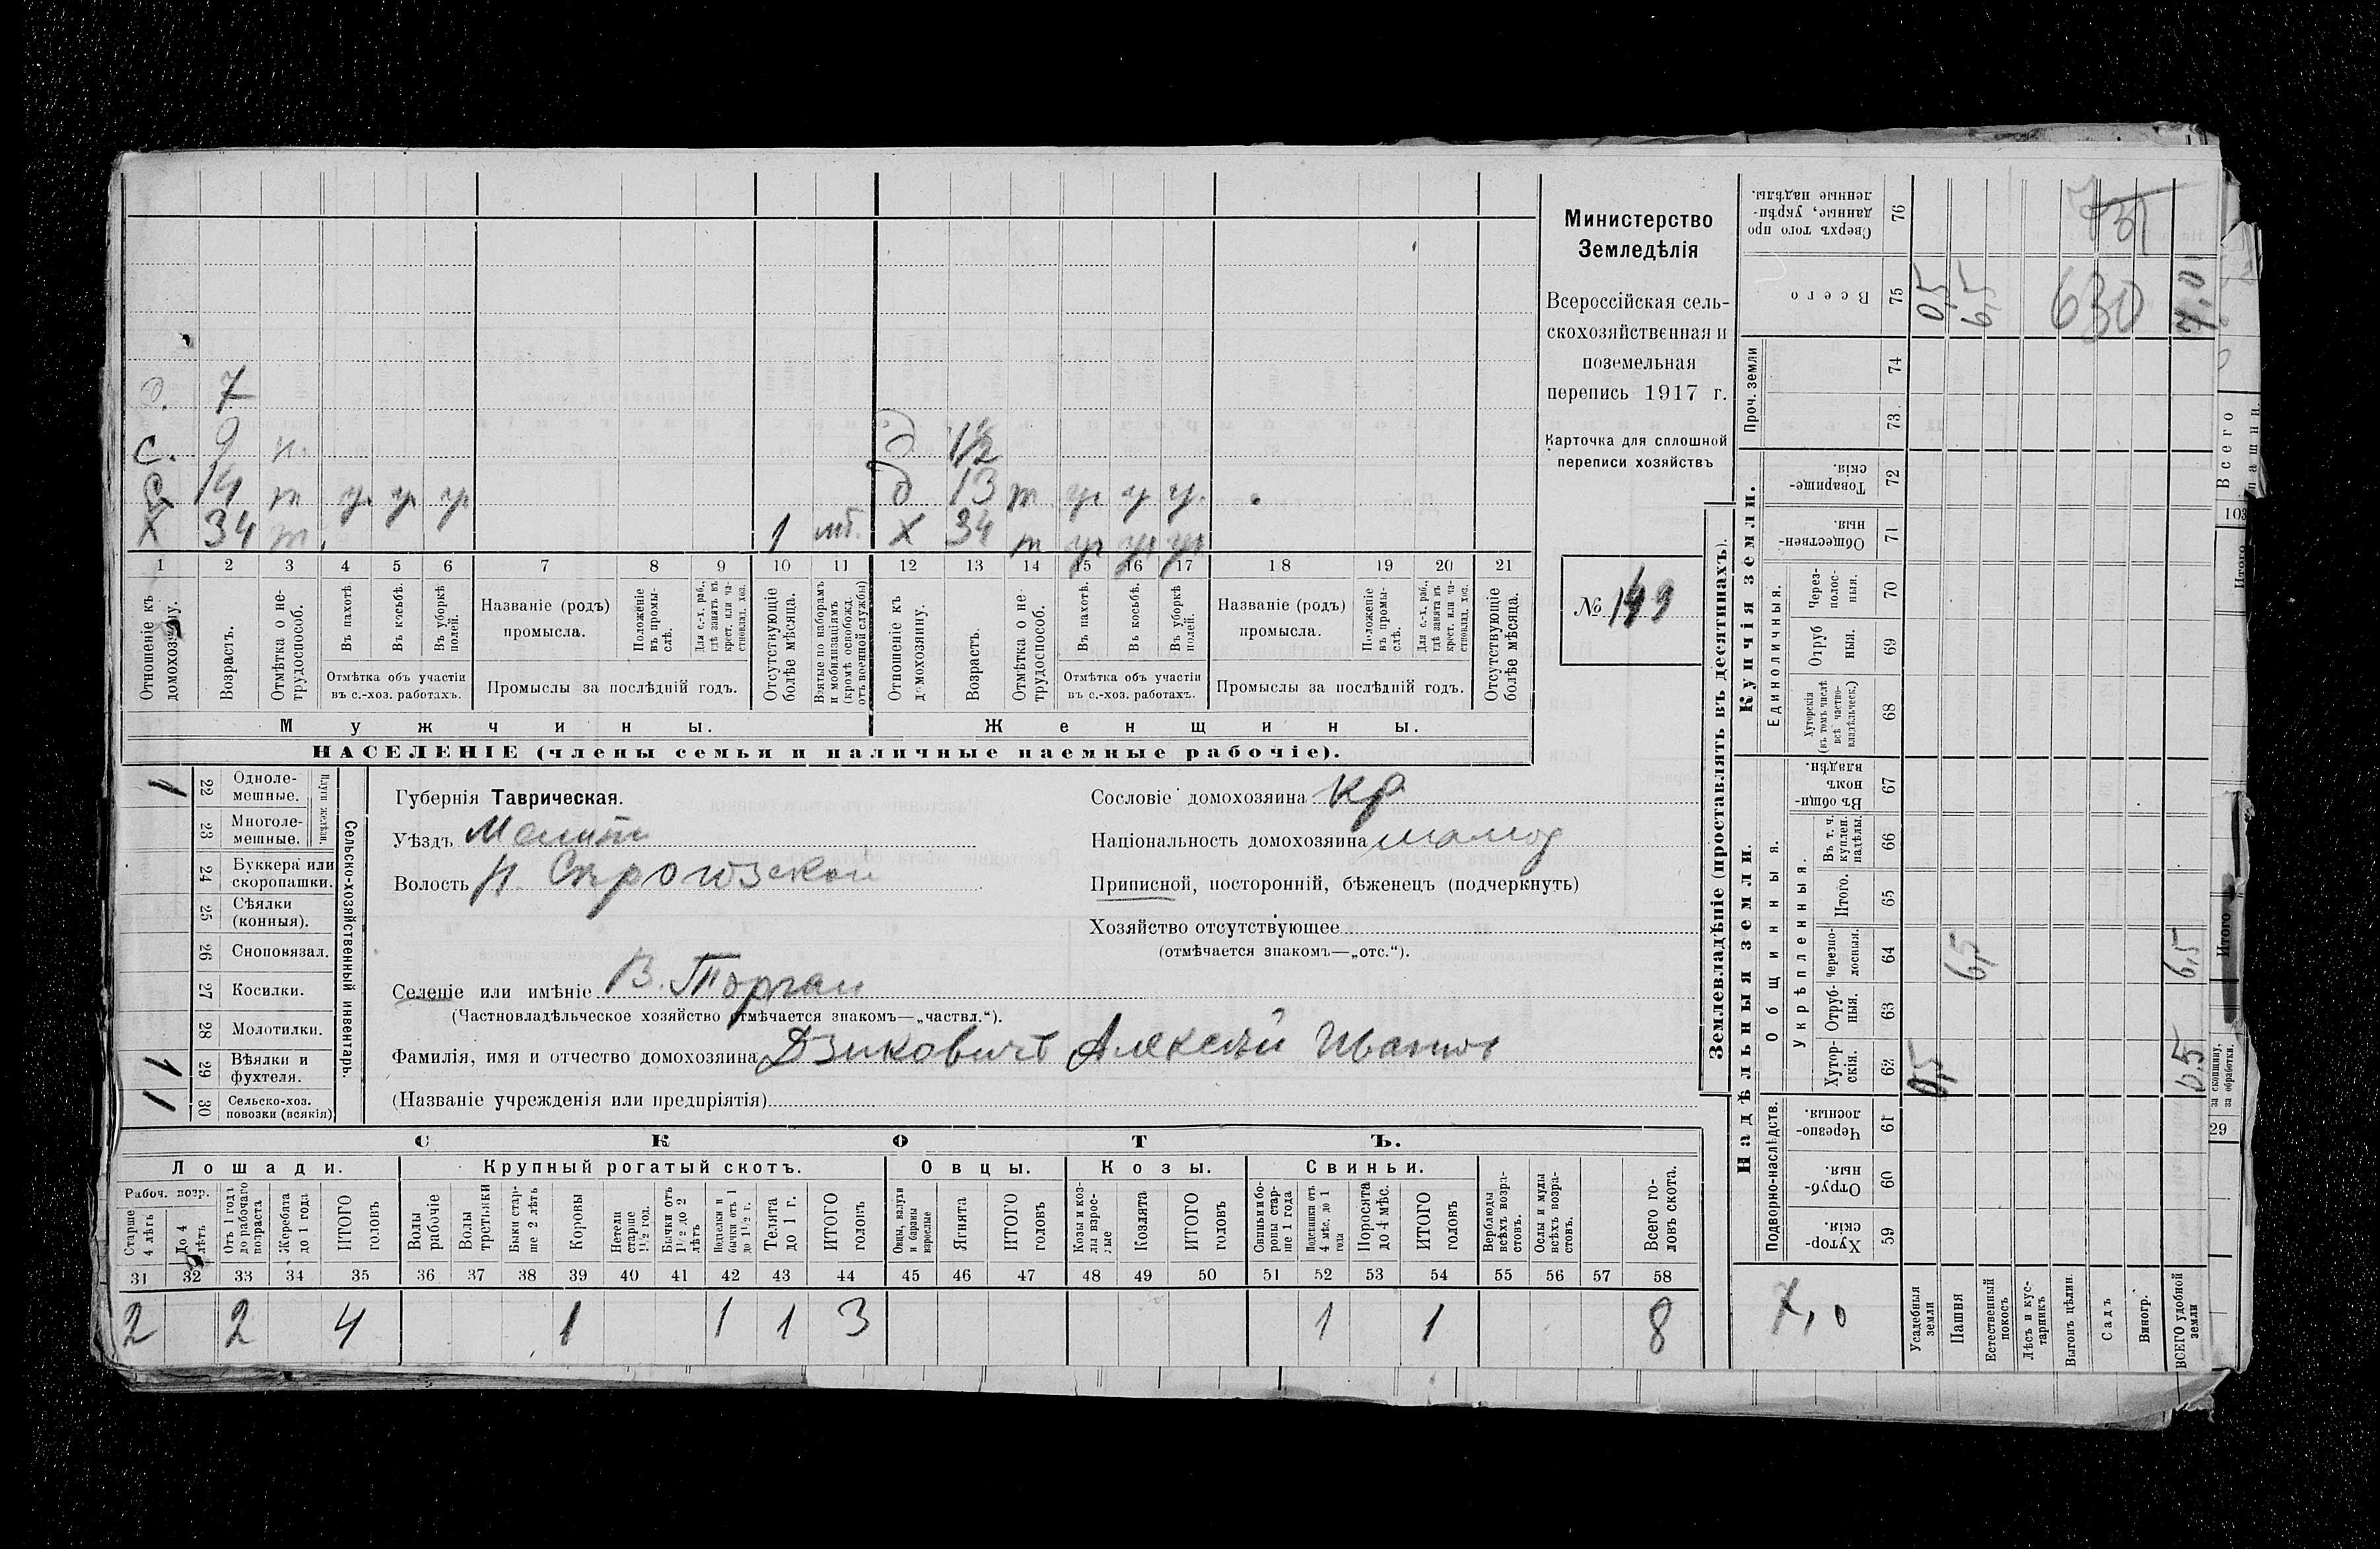 д. 7
с. 9 н.
д 1½
с 14 т у. у. у.
д 13 т у. у. у.
х 34 т. 1 мб.
х 34 т у. у. у.
1 2 3 4 5 6 7 8 9 10 11 12 13 14 15 16 17 18 19 20 21
Отношеніе къ домохозяину.
Возрастъ.
Отмѣтка о не-трудоспособ.
Въ пахотѣ.
Въ косьбѣ.
Въ уборкѣ полей.
Отмѣтка объ участіи
въ с.-хоз. работахъ.
Названіе (родъ)
промысла.
Положеніе въ промы-слѣ.
Для с.-х. раб., гдѣ занятъ въ крест. или ча-стновлад. хоз.
Промыслы за послѣдній годъ.
Отсутствующіе болѣе мѣсяца.
Взятые по наборамъ и мобилизаціямъ (кромѣ освобожд. отъ военной службы)
Отношеніе къ домохозяину.
Возрастъ.
Отмѣтка о не-трудоспособ.
Въ пахотѣ.
Въ косьбѣ.
Въ уборкѣ полей.
Отмѣтка объ участіи
въ с.-хоз. работахъ.
Названіе (родъ)
промысла.
Положеніе въ промы-слѣ.
Для с.-х. раб., гдѣ занята въ крест. или ча-стновлад. хоз.
Промыслы за послѣдній годъ.
Отсутствующіе болѣе мѣсяца.
Мужчины.
Женщины.
НАСЕЛЕНІЕ (члены семьи и наличные наемные рабочіе).
Министерство
Земледѣлія
Всероссійская сель-
скохозяйственная и
поземельная
перепись 1917 г.
Карточка для сплошной
переписи хозяйствъ
№ 149
Сельско-хозяйственный инвентарь.
Плуги желѣзн.
1 22 Одноле-мешные.
23 Многоле-мешные.
24 Буккера или скоропашки.
25 Сѣялки (конныя).
26 Сноповязал.
27 Косилки.
28 Молотилки.
1 29 Вѣялки и фухтеля.
1 30 Сельско-хоз. повозки (всякія)
Губернія Таврическая.
Уѣздъ Мелит
Волость н. Сѣрогозской
Селеніе или имѣніе В. Торгаи
(Частновладѣльческое хозяйство отмѣчается знакомъ—„частвл.“).
Фамилія, имя и отчество домохозяина Дзиковичъ Алексѣй Иванов
(Названіе учрежденія или предпріятія)
Сословіе домохозяина кр
Національность домохозяина малор
Приписной, посторонній, бѣженецъ (подчеркнуть)
Хозяйство отсутствующее
(отмѣчается знакомъ—„отс.“).
СКОТЪ.
Лошади.
Крупный рогатый скотъ.
Овцы.
Козы.
Свиньи.
Рабоч. возр.
Старше 4 лѣтъ
До 4 лѣтъ
Отъ 1 года до рабочаго возраста
Жеребята до 1 года
ИТОГО головъ
Волы рабочіе
Волы третьяки
Быки стар-ше 2 лѣтъ
Коровы
Нетели старше 1½ год.
Бычки отъ 1½ до 2 лѣтъ
Подтелки и бычки отъ 1 до 1½ г.
Телята до 1 г.
ИТОГО головъ
Овцы, валухи и бараны взрослые
Ягнята
ИТОГО головъ
Козы и коз-лы взрос-лые
Козлята
ИТОГО головъ
Свиньи и бо-ровы стар-ше 1 года
Подсвинки отъ 4 мѣс. до 1 года
Поросята до 4 мѣс.
ИТОГО головъ
Верблюды всѣхъ возра-стовъ.
Ослы и мулы всѣхъ возра-стовъ.
Всего го-ловъ скота.
31 32 33 34 35 36 37 38 39 40 41 42 43 44 45 46 47 48 49 50 51 52 53 54 55 56 57 58
2 2 4 1 1 1 3 1 1 8
Землевладѣніе (проставлять въ десятинахъ).
Надѣльныя земли.
Купчія земли.
Проч. земли
Подворно-наслѣдств.
Общинныя.
Укрѣпленныя.
Единоличныя.
Хутор-скія. 59
Отруб-ныя. 60
Черезпо-лосныя. 61
Хутор-скія. 62
Отруб-ныя. 63
Черезпо-лосныя. 64
Итого. 65
Въ т. ч. куплен. надѣлы. 66
Въ общи-номъ владѣн. 67
Хуторскія (въ томъ числѣ всѣ частно-владѣльческ.) 68
Отруб ныя. 69
Через-полос-ныя. 70
Обществен-ныя. 71
Товарище-скія. 72
73
74
Всего 75
Сверхъ того про данные, укрѣп-ленные надѣлы. 76
7,0
Усадебныя земли 0,5 0,5
Пашня 6,5 6,5
Естественный покосъ
Лѣсъ и кус-тарникъ
Выгонъ цѣлин.
Садъ
Виногр.
ВСЕГО удобной земли 0,5 6,5 7,0
630
Всего
пашни.
103
Итого
Итого
за скопщину, за обработки.
29